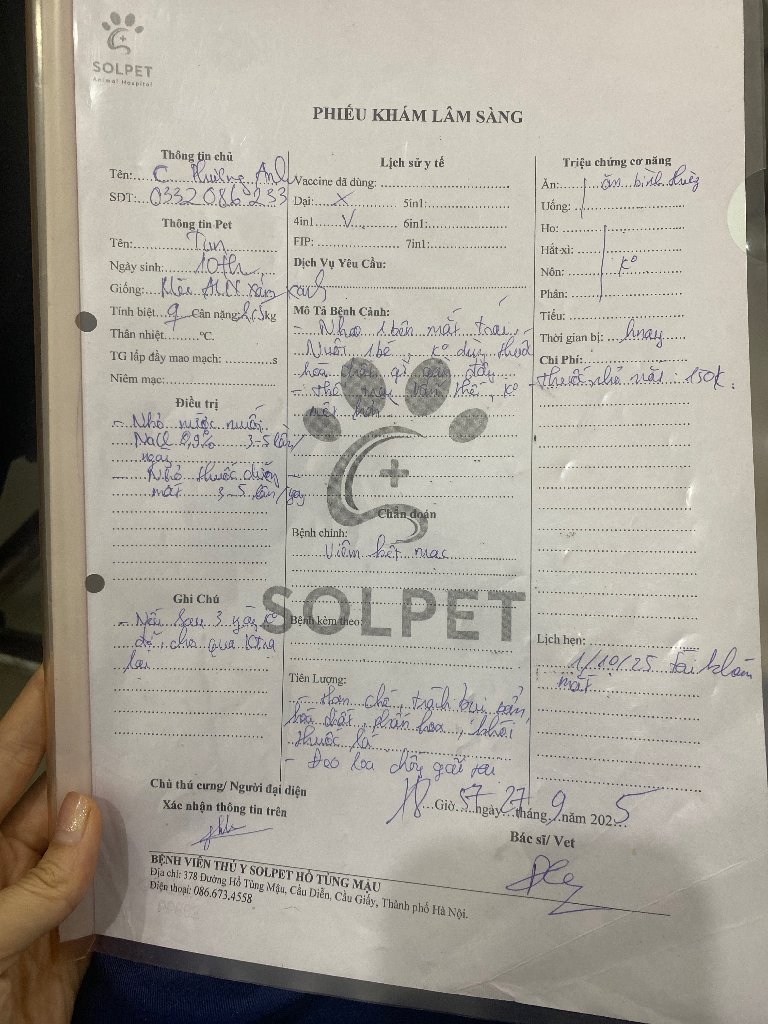 SOLPET
Animal Hospital
PHIẾU KHÁM LÂM SÀNG
Thông tin chủ
Tên: C Phương Anh
SĐT: 0332 086 233
Thông tin Pet
Tên: Tun
Ngày sinh: 10th
Giống: Mèo ALN xám xanh
Tính biệt ♀ Cân nặng: 2,5kg
Thân nhiệt °C.
TG lấp đầy mao mạch: s
Niêm mạc:
Điều trị
- Nhỏ nước muối
NaCl 0,9% 3-5 lần/
ngày
- Nhỏ thuốc dưỡng
mắt 3-5 lần/ngày
Ghi Chú
- Nếu sau 3 ngày k°
đỡ, cho qua ktra
lại
Lịch sử y tế
Vaccine đã dùng:
Dại: X 5in1:
4in1 V 6in1:
FIP: 7in1:
Dịch Vụ Yêu Cầu:
Mô Tả Bệnh Cảnh:
- Nheo 1 bên mắt trái,
Nuôi 1 bé, k° dùng thuốc
hóa chất gì gần đây
- Thể trạng, k°
Chẩn đoán
Bệnh chính:
Viêm kết mạc
SOLPET
Bệnh kèm theo:
Tiên Lượng:
- Hạn chế, tránh bụi bẩn,
hóa chất, phấn hoa, khói
thuốc lá
- Đeo loa chống gãi
Triệu chứng cơ năng
Ăn: ăn bình thường
Uống:
Ho:
Hắt xì:
Nôn: k°
Phân:
Tiểu:
Thời gian bị: hnay
Chi Phí:
- thuốc nhỏ mắt: 150k.
Lịch hẹn:
1/10/25 tái khám
mắt
Chủ thú cưng/ Người đại diện
Xác nhận thông tin trên
18 Giờ 57 ngày 27 tháng 9 năm 2025
Bác sĩ/ Vet
BỆNH VIỆN THÚ Y SOLPET HỒ TÙNG MẬU
Địa chỉ: 378 Đường Hồ Tùng Mậu, Cầu Diễn, Cầu Giấy, Thành phố Hà Nội.
Điện thoại: 086.673.4558